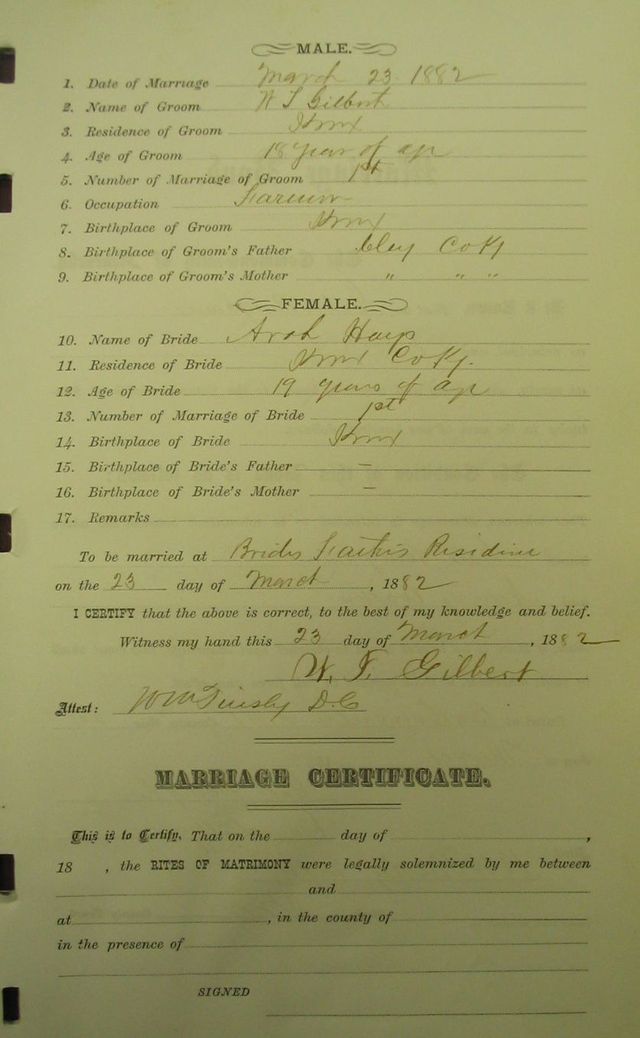 MALE.
1. Date of Marriage March 23 1882
2. Name of Groom W T Gilbert
3. Residence of Groom Knox
4. Age of Groom 18 Years of age
5. Number of Marriage of Groom 1st
6. Occupation Farmer
7. Birthplace of Groom Knox
8. Birthplace of Groom's Father Clay Co Ky
9. Birthplace of Groom's Mother " " "
FEMALE.
10. Name of Bride Arah Hays
11. Residence of Bride Knox Co Ky.
12. Age of Bride 19 years of age
13. Number of Marriage of Bride 1st
14. Birthplace of Bride Knox
15. Birthplace of Bride's Father –
16. Birthplace of Bride's Mother –
17. Remarks
To be married at Brides Fathers Residence
on the 23 day of March, 1882
I CERTIFY that the above is correct, to the best of my knowledge and belief.
Witness my hand this 23 day of March, 1882
W. T. Gilbert
Attest: Wm Tinsly D.C
MARRIAGE CERTIFICATE.
This is to Certify, That on the day of ,
18 , the RITES OF MATRIMONY were legally solemnized by me between
and
at , in the county of
in the presence of
SIGNED